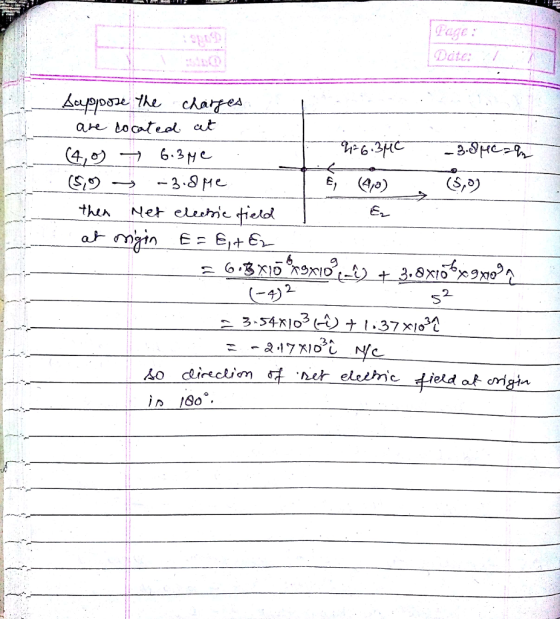 Page :
Date: / /
Suppose the charges
are located at
(4,0) → 6.3 μC
(5,0) → -3.8 μC
then Net electric field
at origin E = E₁ + E₂
q₁=6.3μC
-3.8μC=q₂
E₁ (4,0) (5,0)
E₂
= 6.3×10⁻⁶×9×10⁹ (-î) / (-4)² + 3.8×10⁻⁶×9×10⁹ î / 5²
= 3.54×10³ (-î) + 1.37×10³ î
= -2.17×10³ î N/C
so direction of net electric field at origin
is 180°.